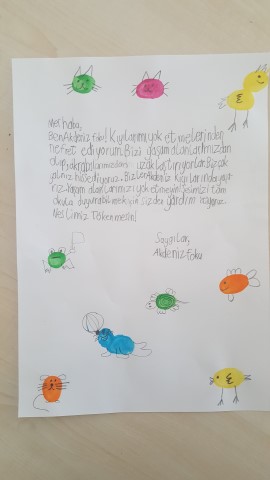 Merhaba,
Ben Akdeniz foku! Kıyılarımı yok etmelerinden
nefret ediyorum. Bizi yaşam alanlarımızdan
olup, akrabalarımızdan uzaklaştırıyorlar. Biz çok
yalnız hissediyoruz. Bizler Akdeniz kıyılarında yaşa
rız. Yaşam alanlarımızı yok etmeyin! Sesimizi tüm
okula duyurabilmek için sizden yardım istiyoruz.
Neslimiz Tükenmesin!
Saygılar,
Akdeniz foku